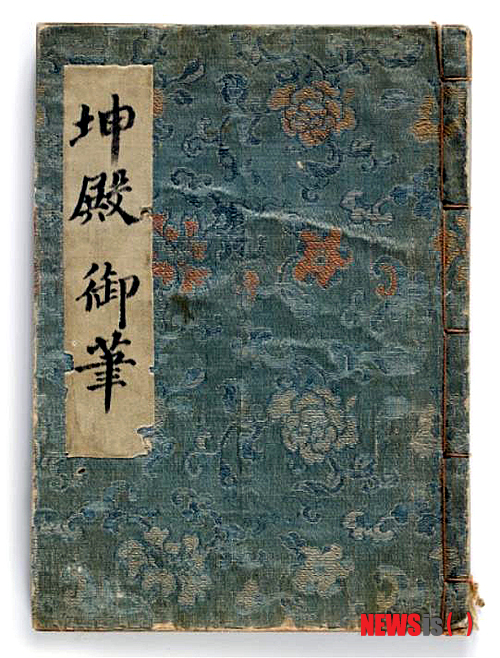 坤殿 御筆
NEWSis( )